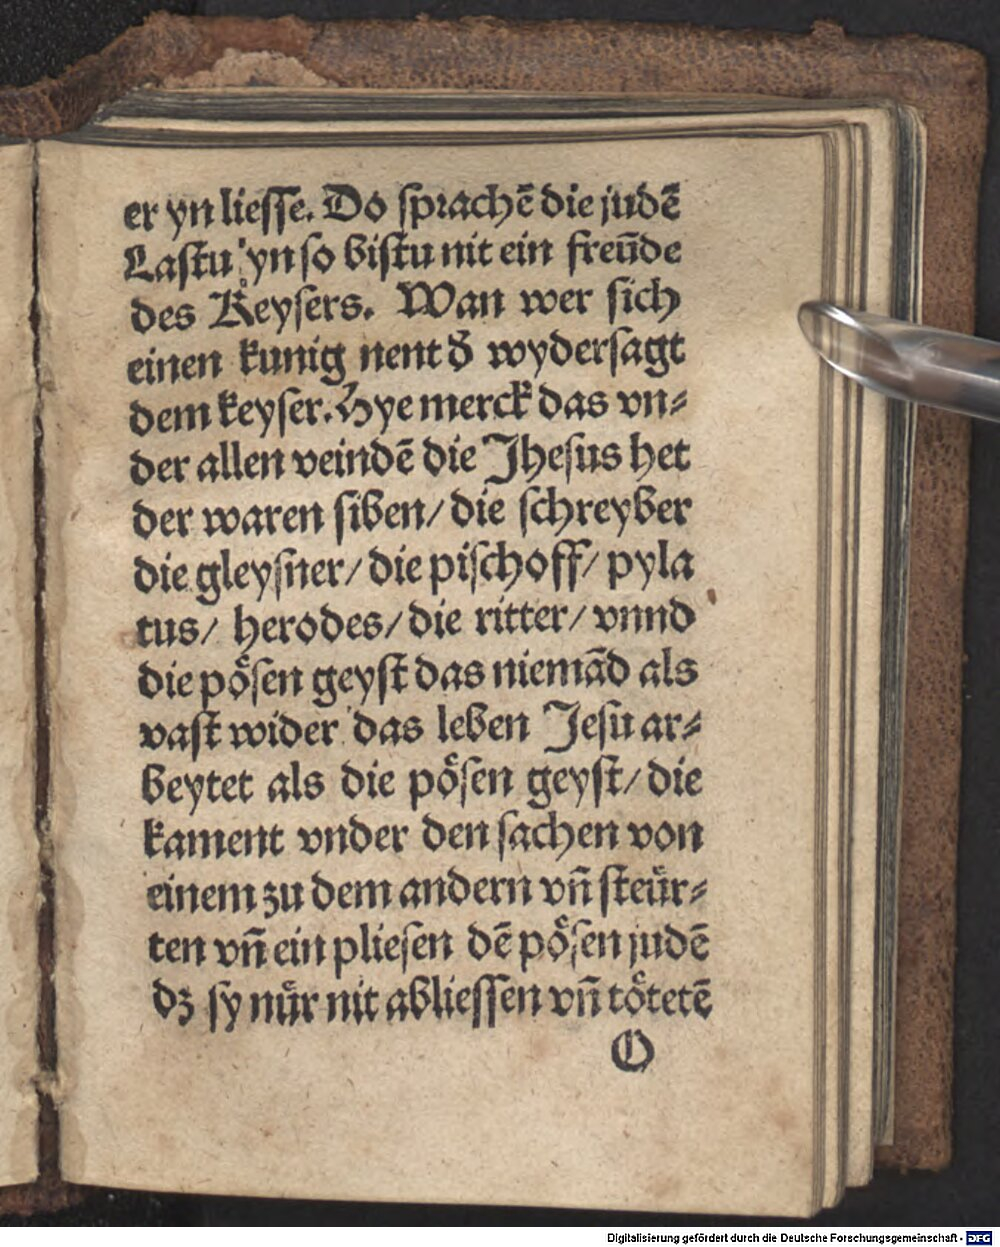 er yn liesse. Do sprachē die judē
Lastu yn so bistu nit ein freūde
des Keysers. Wan wer sich
einen kunig nent d̄ wydersagt
dem keyser. Hye merck das vn⸗
der allen veindē die Jhesus het
der waren siben/ die schreyber
die gleysner/ die pischoff/ pyla
tus/ herodes/ die ritter/ vnnd
die poͤsen geyst das niemād als
vast wider das leben Jesu ar⸗
beytet als die poͤsen geyst/ die
kament vnder den sachen von
einem zu dem andern vn̄ steuͤr⸗
ten vn̄ ein pliesen dē poͤsen judē
dz sy nuͤr nit abliessen vn̄ toͤtetē
O
Digitalisierung gefördert durch die Deutsche Forschungsgemeinschaft - DFG